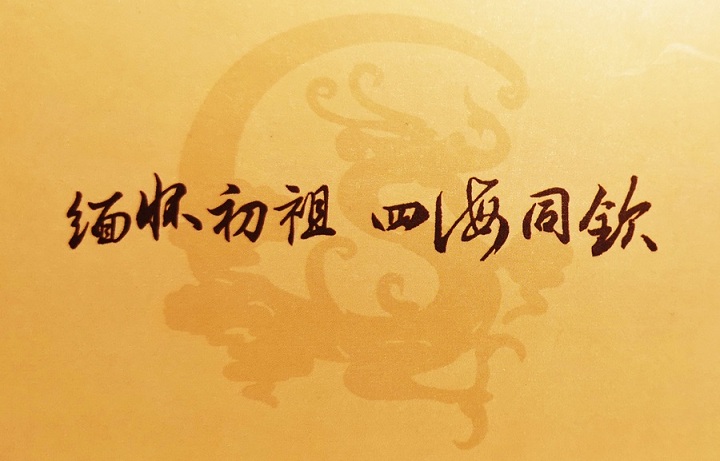 缅怀初祖 四海同钦